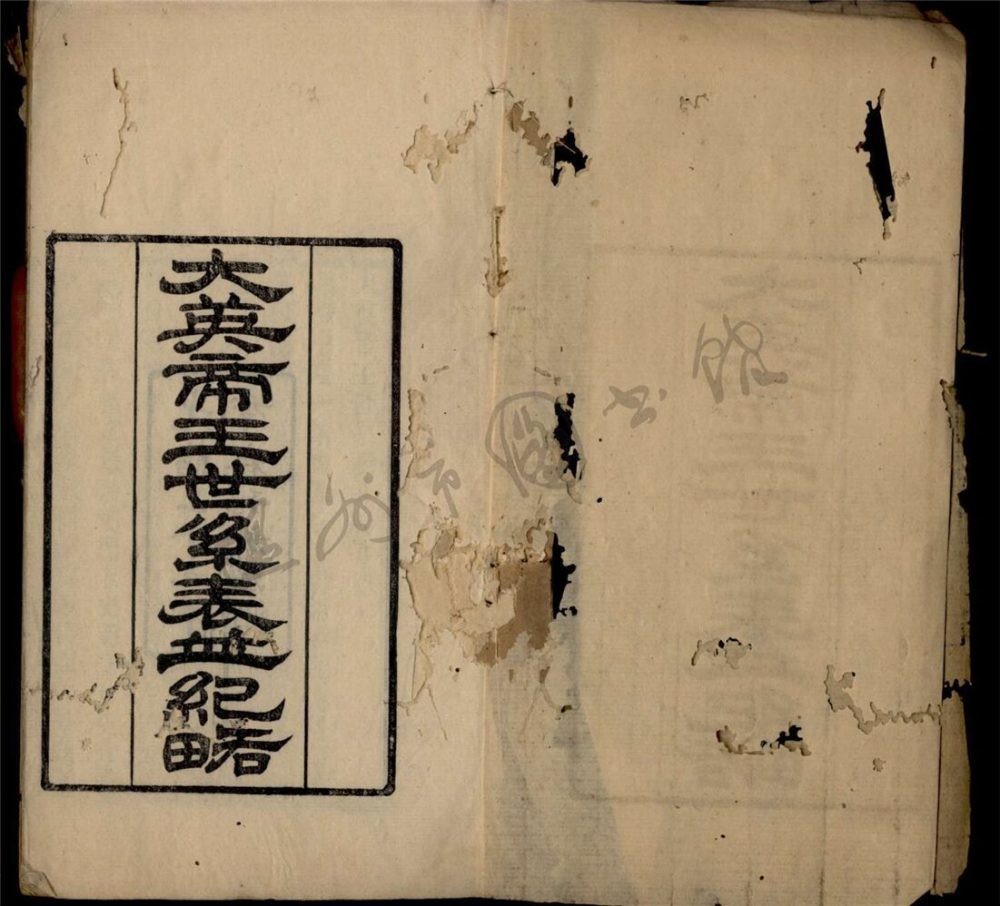 大英帝王世系表並紀略